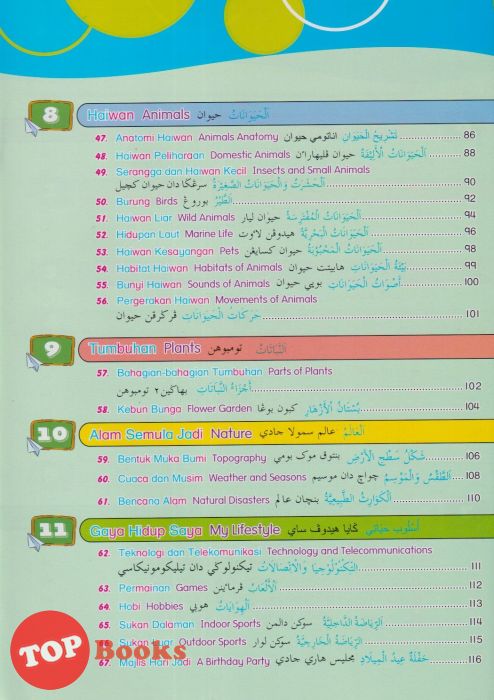 8 Haiwan Animals حيوان اَلْحَيَوَانَاتُ
47. Anatomi Haiwan Animals Anatomy اناتومي حيوان تَشْرِيحُ الْحَيَوَانِ 86
48. Haiwan Peliharaan Domestic Animals حيوان ڤليهاراءن اَلْحَيَوَانَاتُ الْأَلِيْفَةُ 88
49. Serangga dan Haiwan Kecil Insects and Small Animals
سرڠݢا دان حيوان کچيل اَلْحَشَرَتُ وَالْحَيَوَانَاتُ الصَّغِيْرَةُ 90
50. Burung Birds بوروڠ اَلطَّيْرُ 92
51. Haiwan Liar Wild Animals حيوان ليار اَلْحَيَوَانَاتُ الْمُفْتَرِسَةُ 94
52. Hidupan Laut Marine Life هيدوڤن لاٴوت اَلْحَيَوَانَاتُ الْبَحْرِيَّةُ 96
53. Haiwan Kesayangan Pets حيوان کسايڠن اَلْحَيَوَانَاتُ الْمَحْبُوْبَةُ 98
54. Habitat Haiwan Habitats of Animals هابيتت حيوان بِيْئَةُ الْحَيَوَانَاتِ 99
55. Bunyi Haiwan Sounds of Animals بوڽي حيوان أَصْوَاتُ الْحَيَوَانَاتِ 100
56. Pergerakan Haiwan Movements of Animals
ڤرݢرقن حيوان حَرَكَاتُ الْحَيَوَانَاتِ 101
9 Tumbuhan Plants تومبوهن اَلنَّبَاتَاتُ
57. Bahagian-bahagian Tumbuhan Parts of Plants
بهاݢين٢ تومبوهن أَجْزَاءُ النَّبَاتَاتِ 102
58. Kebun Bunga Flower Garden کبون بوڠا بُسْتَانُ الْأَزْهَارِ 104
10 Alam Semula Jadi Nature عالم سمولا جادي اَلْعَالَمُ
59. Bentuk Muka Bumi Topography بنتوق موک بومي شَكْلُ سَطْحِ الْأَرْضِ 106
60. Cuaca dan Musim Weather and Seasons چواچ دان موسيم اَلطَّقْسُ وَالْمَوْسِمُ 108
61. Bencana Alam Natural Disasters بنچان عالم اَلْكَوَارِثُ الطَّبِيْعِيَّةُ 110
11 Gaya Hidup Saya My Lifestyle ݢايا هيدوڤ ساي أُسْلُوبُ حَيَاتِي
62. Teknologi dan Telekomunikasi Technology and Telecommunications
تيکنولوݢي دان تيليکومونيکاسي اَلتِّكْنُوْلُوْجِيَا وَالْاِتِّصَالَاتُ 111
63. Permainan Games ڤرماٴينن اَلْأَلْعَابُ 113
64. Hobi Hobbies هوبي اَلْهِوَايَاتُ 114
65. Sukan Dalaman Indoor Sports سوکن دالمن اَلرِّيَاضَةُ الدَّاخِلِيَّةُ 114
66. Sukan Luar Outdoor Sports سوکن لوار اَلرِّيَاضَةُ الْخَارِجِيَّةُ 115
67. Majlis Hari Jadi A Birthday Party مجليس هاري جادي حَفْلَةُ عِيْدِ الْمِيلَادِ 116
TOP Books